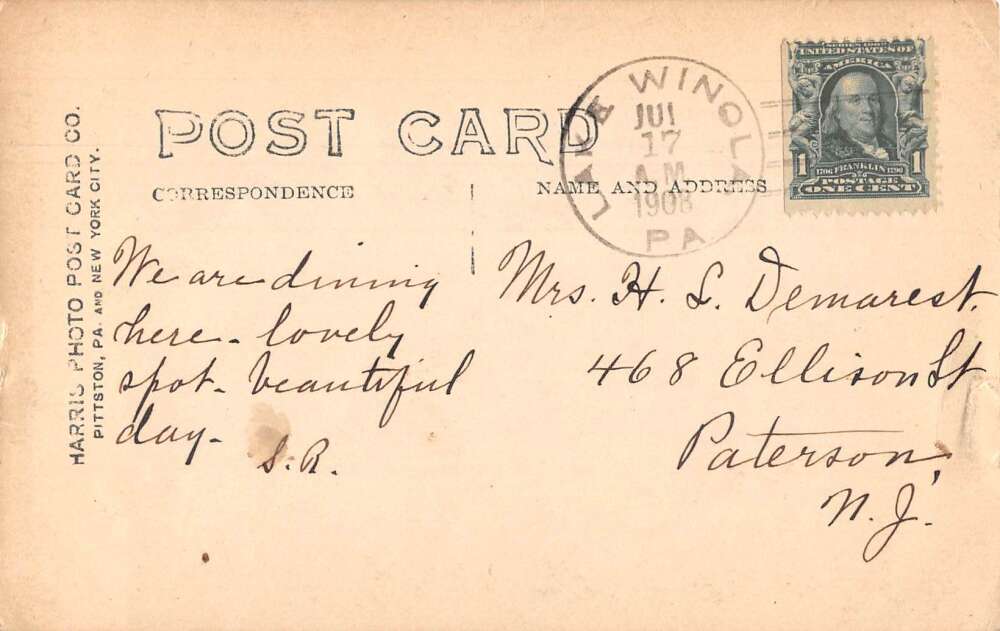 HARRIS PHOTO POST CARD CO.
PITTSTON, PA. AND NEW YORK CITY.
POST CARD
CORRESPONDENCE
NAME AND ADDRESS
LAKE WINOLA
JUL
17
A.M
1908
PA
SERIES 1902
UNITED STATES OF
AMERICA
1706 FRANKLIN 1790
POSTAGE
1 ONE CENT 1
We are dining
here - lovely
spot - beautiful
day -
S. R.
Mrs. H. L. Demarest.
468 Ellison St
Paterson,
N. J.